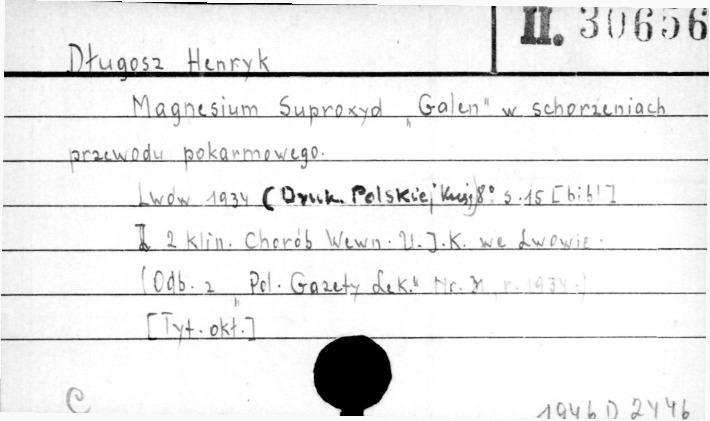 II. 30656
Długosz Henryk
Magnesium Suproxyd „Galen" w schorzeniach
przewodu pokarmowego.
Lwów 1934 (Druk. Polskiej Książ) 8° s. 15 [bibl]
2 klin. Chorób Wewn. U.J.K. we Lwowie.
(Odb. z „Pol. Gazety Lek." Nr. r. 1934.)
[Tyt. okł.]
C
1946 D 2446